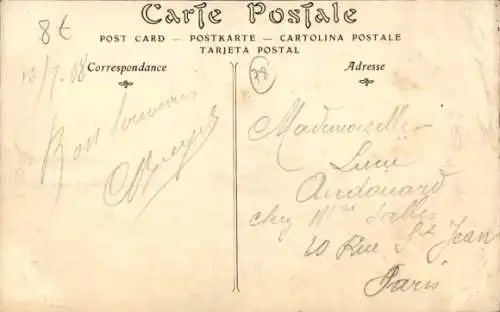 8€
Carte Postale
POST CARD — POSTKARTE — CARTOLINA POSTALE
TARJETA POSTAL
Correspondance
Adresse
78
13/7.08
Bon souvenir
Mademoiselle
Lucie
Audouard
chez Mme
10 Rue St Jean
Paris